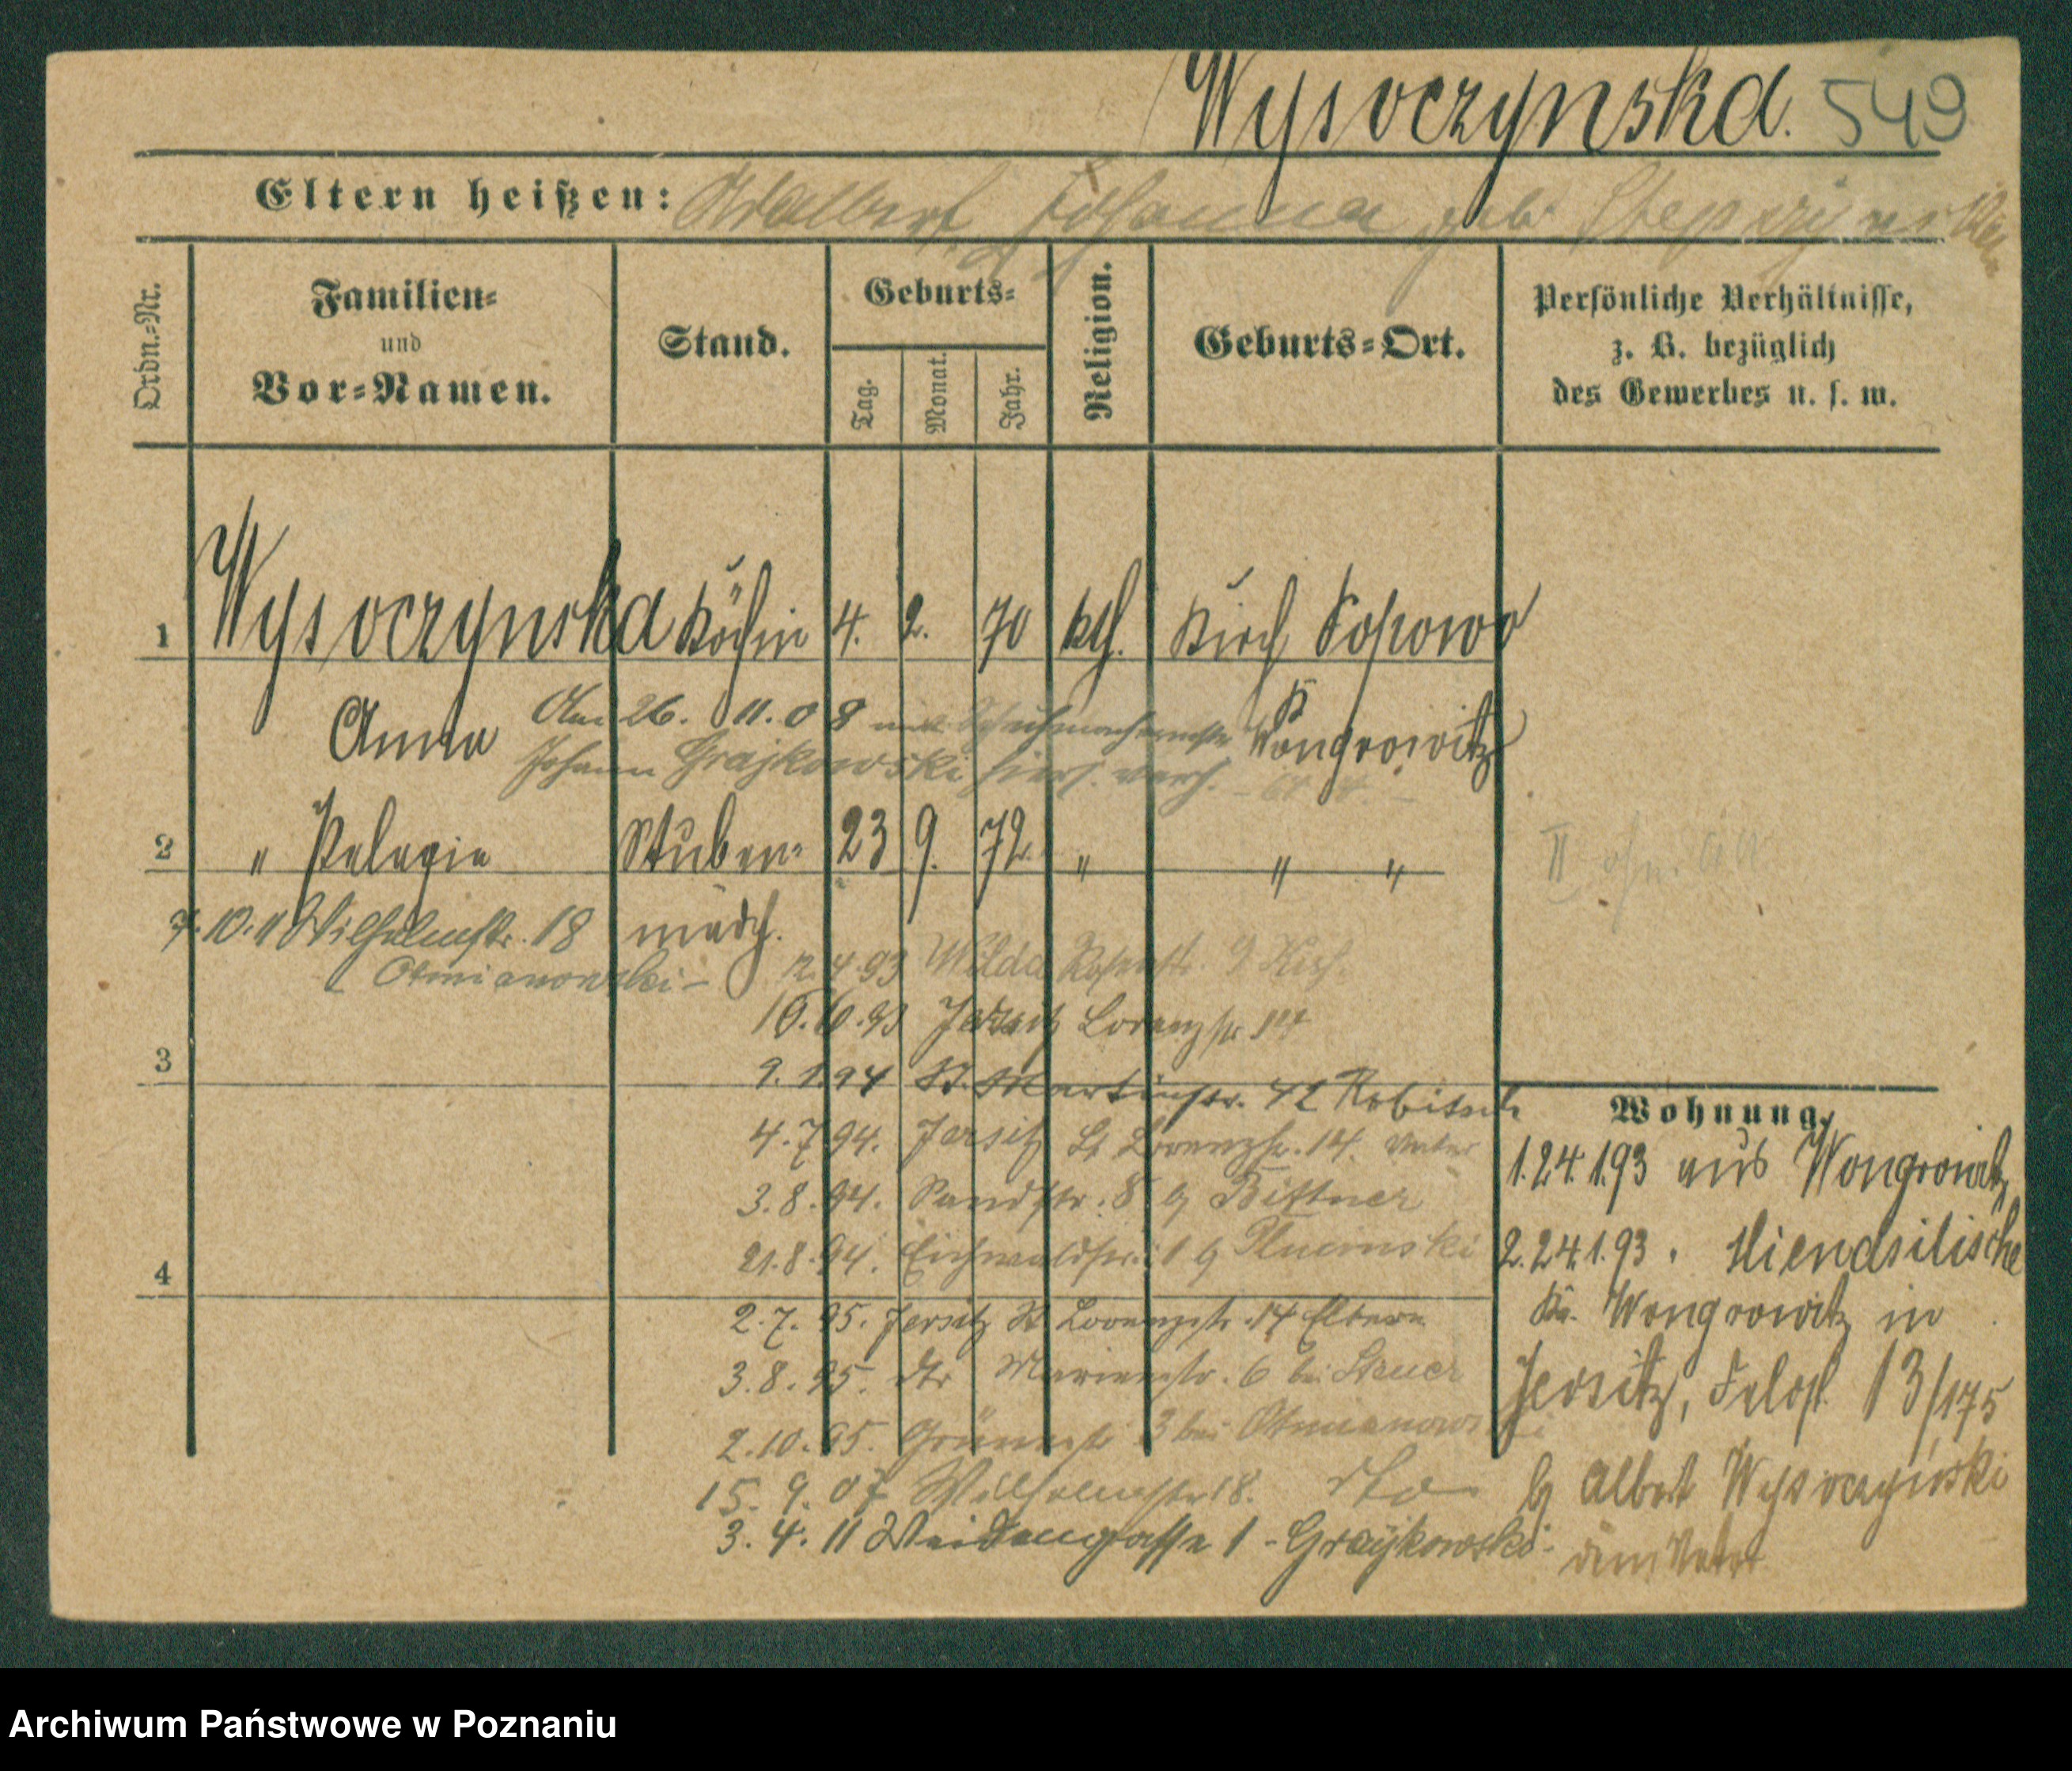 Wysoczynska. 549
Eltern heißen: Adalbert, Johanna geb.
Ordn.=Nr.
Familien=
und
Vor=Namen.
Stand.
Geburts=
Tag.
Monat.
Jahr.
Religion.
Geburts=Ort.
Persönliche Verhältnisse,
z. B. bezüglich
des Gewerbes u. s. w.
1 Wysoczynska Köchin 4. 2. 70 kth. Kirch Popowo
Anna
Am 26. 11. 08 mit
Johann Grajkowski
Kr Wongrowitz
2 " Pelagie Stuben= 23 9. 72 " " "
mädch.
7. 10. 11 Wilhelmstr. 18
Otmianowski -
2.4.93 Wilda 9
10.6.93 Jersitz Lorenzstr.
3
9.1.94 St. Martinstr. 42
4.7.94. Jersitz St Lorenzstr. 14. Vater
3.8.94. Sandstr. 8 b/ Bittner
21.8.94. Eichwaldstr. 1 b/
4
2.7.95. Jersitz St Lorenzstr. 14 Eltern
3.8.95. dto Marienstr. 6 bei
2.10.95. 3 bei Otmianowski
15. 9. 07 Wilhelmstr 18. dto
3. 4. 11 Weidengasse 1 - Grajkowski -
Wohnung.
1. 24.1.93 aus Wongrowitz
2. 24.1.93 .
Kr. Wongrowitz in
Jersitz, Feldst. 13/175
b/ Albert Wysoczyński
dem Vater
Archiwum Państwowe w Poznaniu